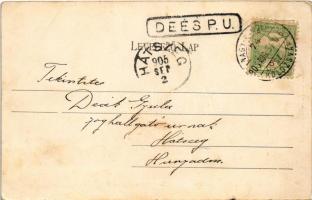 DEÉS P. U.
LEVELEZŐ-LAP
HÁTSZEG
905
SEP
2
Tekintetes
Deák Gyula
joghallgató urnak
Hátszeg
Hunyadm.